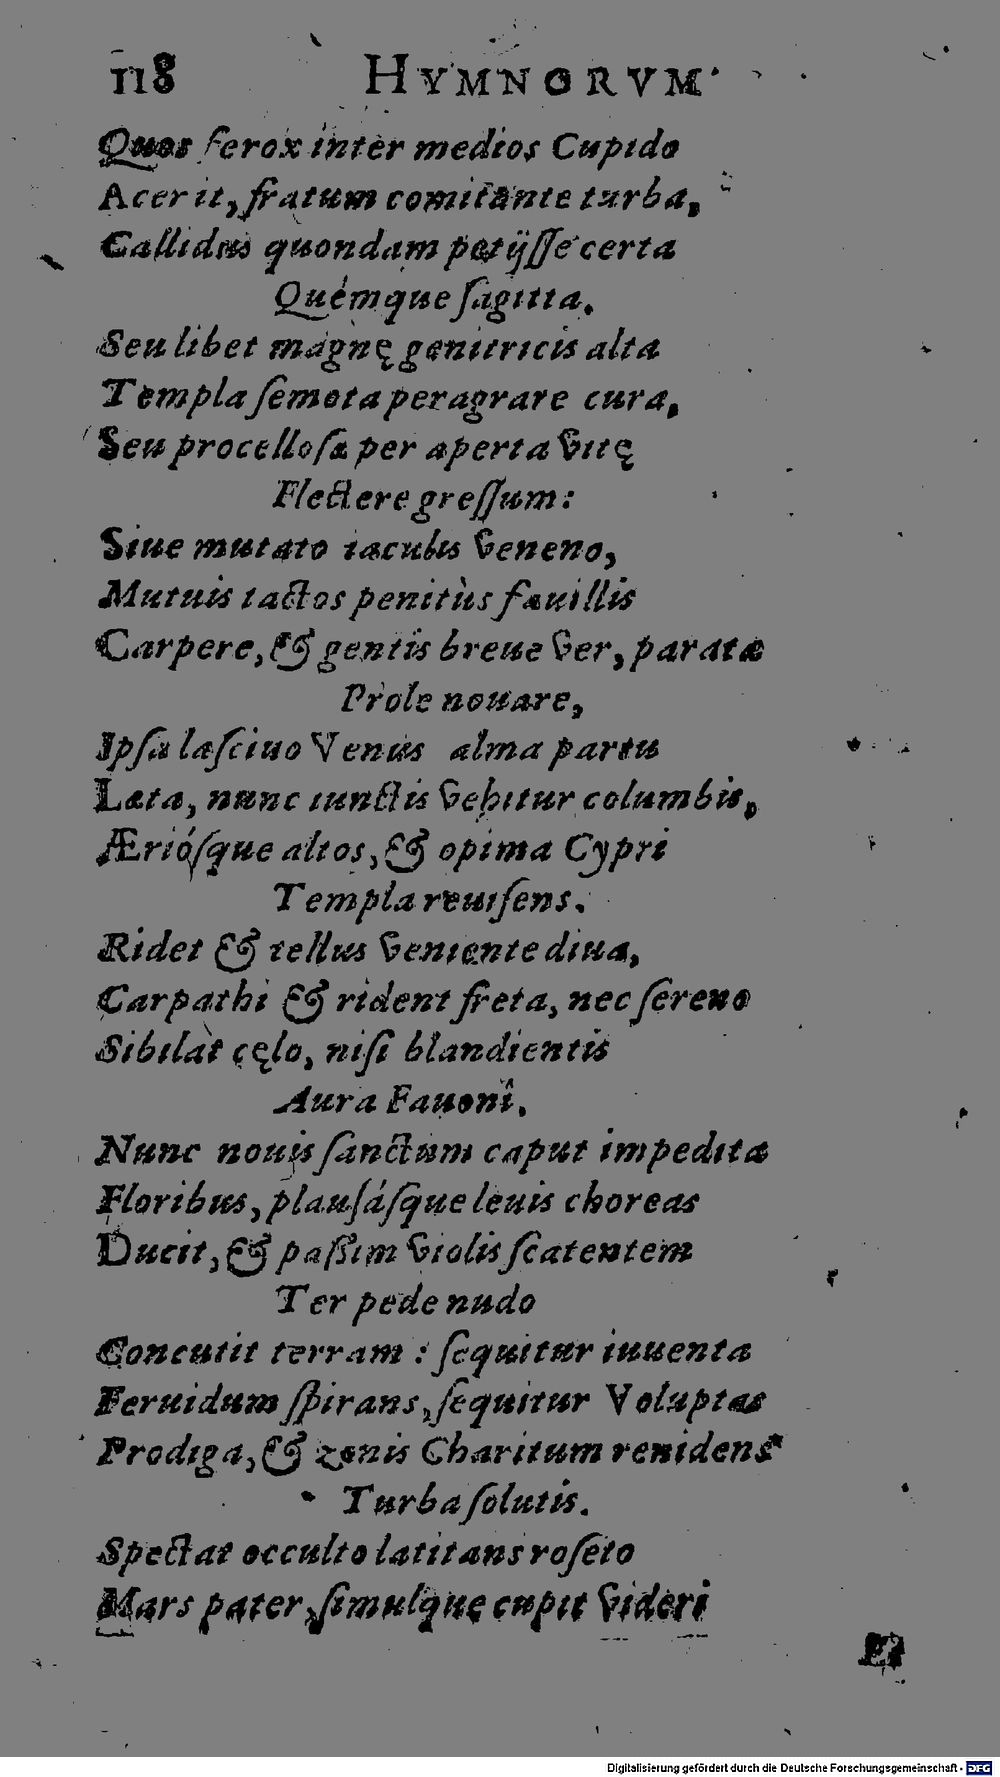 118 HYMNORVM
Quos ferox inter medios Cupido
Acer it, fratum comitante turba,
Callidus quondam petijſſe certa
Quémque ſagitta.
Seu libet magnę genitricis alta
Templa ſemota peragrare cura,
Seu procelloſa per aperta vitę
Flectere greſſum:
Siue mutato iaculis veneno,
Mutuis tactos penitùs fauillis
Carpere, & gentis breue ver, paratæ
Prole nouare,
Ipſa laſciuo Venus alma partu
Læta, nunc iunctis vehitur columbis,
Ærióſque altos, & opima Cypri
Templa reuiſens.
Ridet & tellus veniente diua,
Carpathi & rident freta, nec ſereno
Sibilat cęlo, niſi blandientis
Aura Fauonî.
Nunc nouis ſanctum caput impedita
Floribus, plauſáſque leuis choreas
Ducit, & paßim violis ſcatentem
Ter pede nudo
Concutit terram : ſequitur iuuenta
Feruidum ſpirans, ſequitur Voluptas
Prodiga, & zonis Charitum renidens
Turba ſolutis.
Spectat occulto latitans roſeto
Mars pater, ſimulque cupit videri
Et
Digitalisierung gefördert durch die Deutsche Forschungsgemeinschaft - DFG